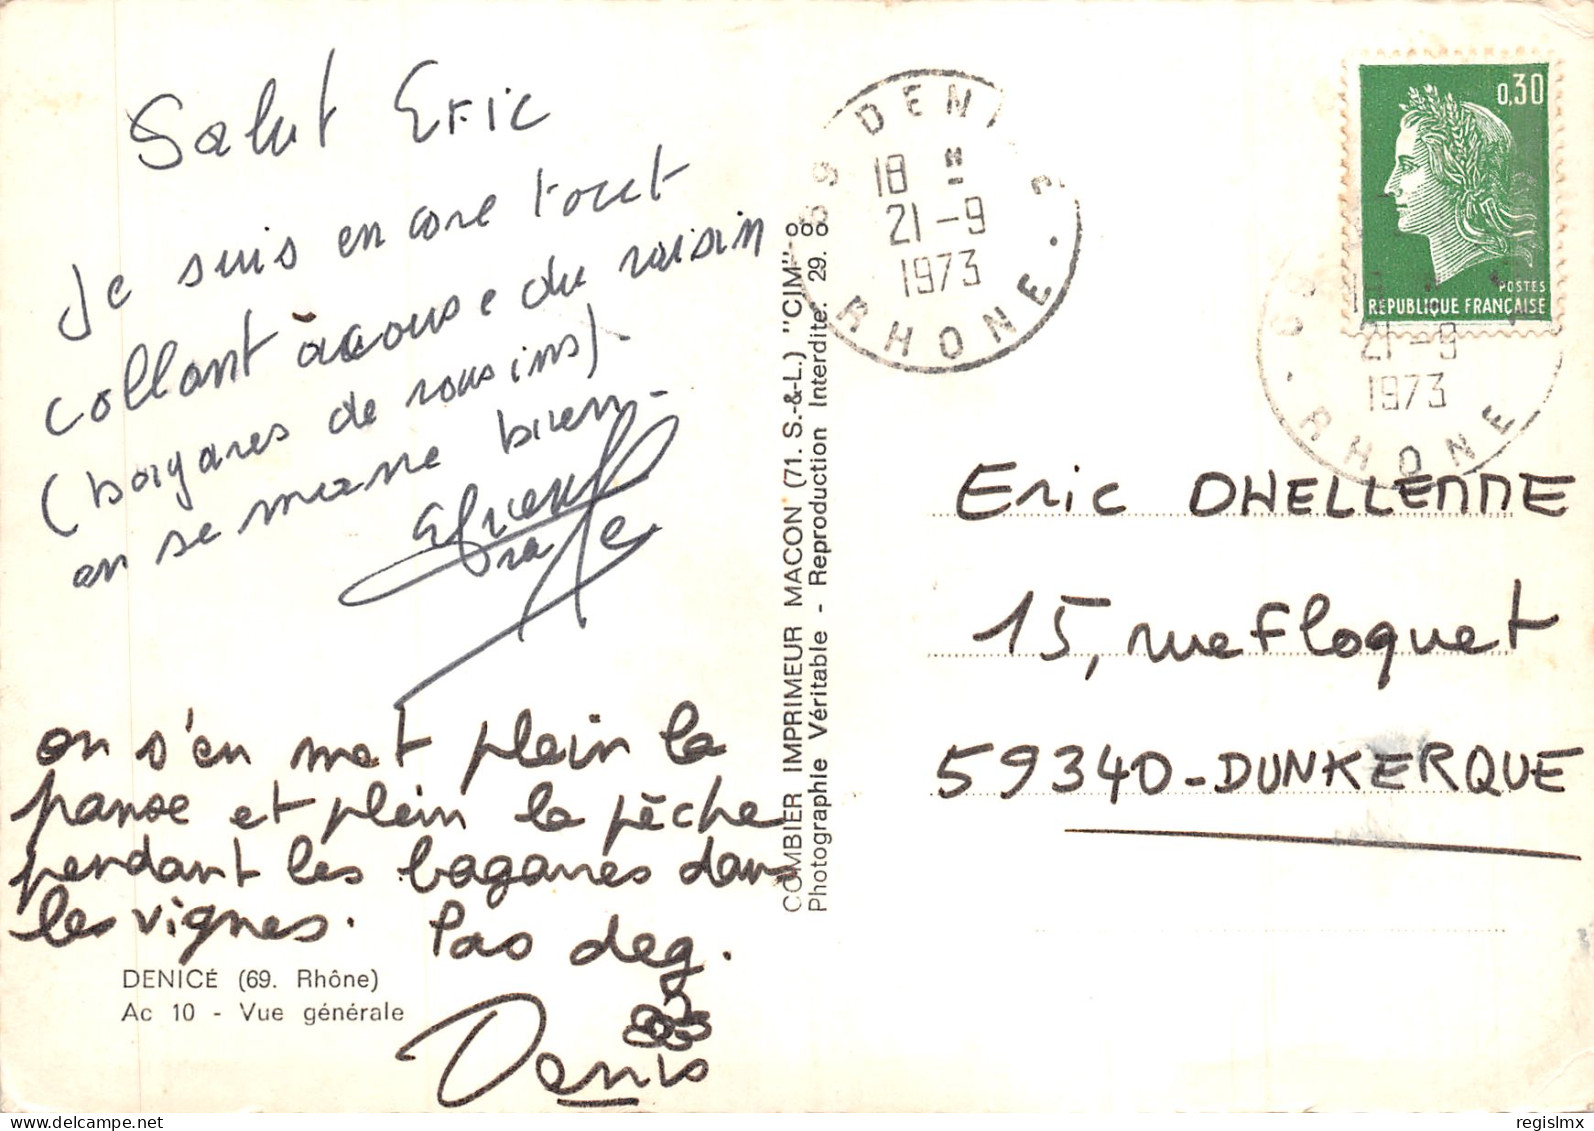 Salut Eric
Je suis en core tout
collant à cause du raisin
(bagares de rousins).
on se marre bien.
on s'en met plein la
panse et plein la pêche
pendant les bagares dans
les vignes. Pas deg.
Denis
DENICÉ (69. Rhône)
Ac 10 - Vue générale
COMBIER IMPRIMEUR MACON (71. S.-&-L.) "CIM"
Photographie Véritable - Reproduction Interdite. 29.
69 DENI
18 H
21-9
1973
RHONE
0,30
POSTES
RÉPUBLIQUE FRANÇAISE
21-9
1973
RHONE
Eric DHELLEMME
15, rue Floquet
59340-DUNKERQUE
delcampe.net
regislmx